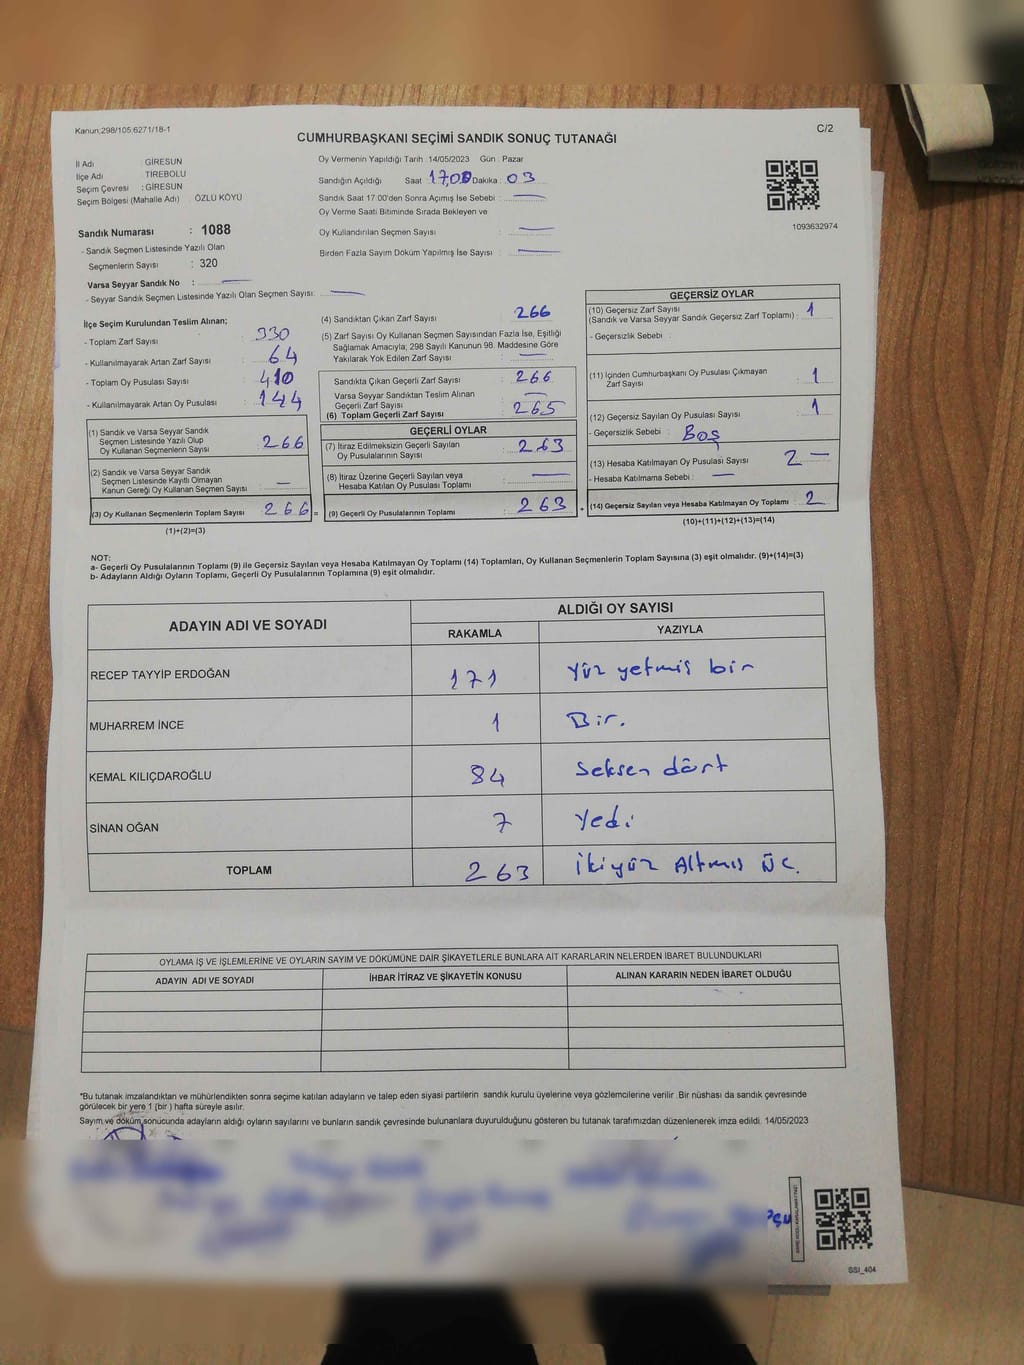 Kanun;298/105;6271/18-1
C/2
CUMHURBAŞKANI SEÇİMİ SANDIK SONUÇ TUTANAĞI
İl Adı : GİRESUN
İlçe Adı : TİREBOLU
Seçim Çevresi : GİRESUN
Seçim Bölgesi (Mahalle Adı) : ÖZLÜ KÖYÜ
Sandık Numarası : 1088
- Sandık Seçmen Listesinde Yazılı Olan
Seçmenlerin Sayısı : 320
Varsa Seyyar Sandık No :
- Seyyar Sandık Seçmen Listesinde Yazılı Olan Seçmen Sayısı:
Oy Vermenin Yapıldığı Tarih : 14/05/2023 Gün : Pazar
Sandığın Açıldığı Saat : 17,00 Dakika : 03
Sandık Saat 17:00'den Sonra Açımış İse Sebebi :
Oy Verme Saati Bitiminde Sırada Bekleyen ve
Oy Kullandırılan Seçmen Sayısı :
Birden Fazla Sayım Döküm Yapılmış İse Sayısı :
1093632974
İlçe Seçim Kurulundan Teslim Alınan;
- Toplam Zarf Sayısı : 330
- Kullanılmayarak Artan Zarf Sayısı : 64
- Toplam Oy Pusulası Sayısı : 410
- Kullanılmayarak Artan Oy Pusulası : 144
(1) Sandık ve Varsa Seyyar Sandık
Seçmen Listesinde Yazılı Olup
Oy Kullanan Seçmenlerin Sayısı : 266
(2) Sandık ve Varsa Seyyar Sandık
Seçmen Listesinde Kayıtlı Olmayan
Kanun Gereği Oy Kullanan Seçmen Sayısı : –
(3) Oy Kullanan Seçmenlerin Toplam Sayısı : 266 =
(1)+(2)=(3)
(4) Sandıktan Çıkan Zarf Sayısı : 266
(5) Zarf Sayısı Oy Kullanan Seçmen Sayısından Fazla İse, Eşitliği
Sağlamak Amacıyla; 298 Sayılı Kanunun 98. Maddesine Göre
Yakılarak Yok Edilen Zarf Sayısı : —
Sandıkta Çıkan Geçerli Zarf Sayısı : 266
Varsa Seyyar Sandıktan Teslim Alınan
Geçerli Zarf Sayısı : —
(6) Toplam Geçerli Zarf Sayısı : 265
GEÇERLİ OYLAR
(7) İtiraz Edilmeksizin Geçerli Sayılan
Oy Pusulalarının Sayısı : 263
(8) İtiraz Üzerine Geçerli Sayılan veya
Hesaba Katılan Oy Pusulası Toplamı : —
(9) Geçerli Oy Pusulalarının Toplamı : 263 +
GEÇERSİZ OYLAR
(10) Geçersiz Zarf Sayısı
(Sandık ve Varsa Seyyar Sandık Geçersiz Zarf Toplamı) : 1
- Geçersizlik Sebebi :
(11) İçinden Cumhurbaşkanı Oy Pusulası Çıkmayan
Zarf Sayısı : 1
(12) Geçersiz Sayılan Oy Pusulası Sayısı : 1
- Geçersizlik Sebebi : Boş
(13) Hesaba Katılmayan Oy Pusulası Sayısı : 2 –
- Hesaba Katılmama Sebebi : —
(14) Geçersiz Sayılan veya Hesaba Katılmayan Oy Toplamı : 2
(10)+(11)+(12)+(13)=(14)
NOT:
a- Geçerli Oy Pusulalarının Toplamı (9) ile Geçersiz Sayılan veya Hesaba Katılmayan Oy Toplamı (14) Toplamları, Oy Kullanan Seçmenlerin Toplam Sayısına (3) eşit olmalıdır. (9)+(14)=(3)
b- Adayların Aldığı Oyların Toplamı, Geçerli Oy Pusulalarının Toplamına (9) eşit olmalıdır.
ADAYIN ADI VE SOYADI
ALDIĞI OY SAYISI
RAKAMLA YAZIYLA
RECEP TAYYİP ERDOĞAN 171 Yüz yetmiş bir
MUHARREM İNCE 1 Bir.
KEMAL KILIÇDAROĞLU 84 Seksen dört
SİNAN OĞAN 7 Yedi
TOPLAM 263 İkiyüz Altmış üç.
OYLAMA İŞ VE İŞLEMLERİNE VE OYLARIN SAYIM VE DÖKÜMÜNE DAİR ŞİKAYETLERLE BUNLARA AİT KARARLARIN NELERDEN İBARET BULUNDUKLARI
ADAYIN ADI VE SOYADI İHBAR İTİRAZ VE ŞİKAYETİN KONUSU ALINAN KARARIN NEDEN İBARET OLDUĞU
*Bu tutanak imzalandıktan ve mühürlendikten sonra seçime katılan adayların ve talep eden siyasi partilerin sandık kurulu üyelerine veya gözlemcilerine verilir .Bir nüshası da sandık çevresinde
görülecek bir yere 1 (bir ) hafta süreyle asılır.
Sayım ve döküm sonucunda adayların aldığı oyların sayılarını ve bunların sandık çevresinde bulunanlara duyurulduğunu gösteren bu tutanak tarafımızdan düzenlenerek imza edildi. 14/05/2023
SSI_404